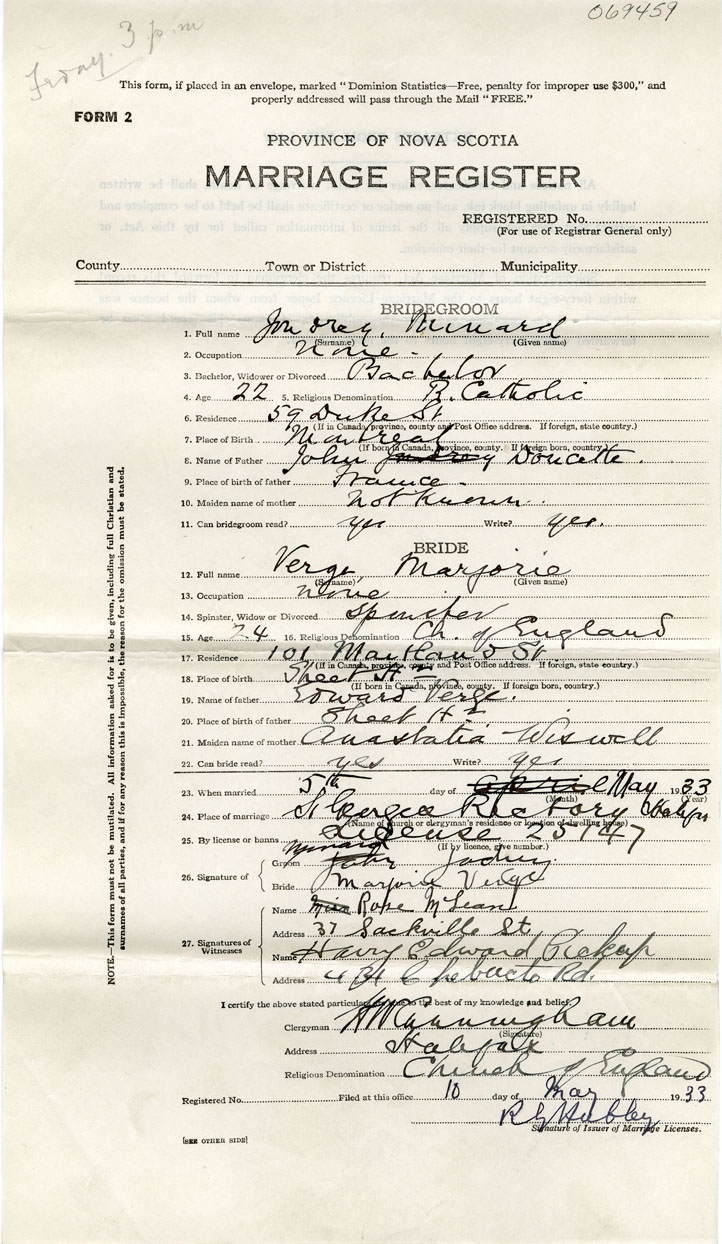 069459
Friday. 3 p.m
This form, if placed in an envelope, marked "Dominion Statistics—Free, penalty for improper use $300," and
properly addressed will pass through the Mail "FREE."
FORM 2
PROVINCE OF NOVA SCOTIA
MARRIAGE REGISTER
REGISTERED No.
(For use of Registrar General only)
County Town or District Municipality
BRIDEGROOM
1. Full name
(Surname) (Given name)
2. Occupation None.
3. Bachelor, Widower or Divorced Bachelor
4. Age 22 5. Religious Denomination R. Catholic
6. Residence 59 Duke St
(If in Canada, province, county and Post Office address. If foreign, state country.)
7. Place of Birth Montreal
(If born in Canada, province, county. If foreign born, country.)
8. Name of Father John Doucette.
9. Place of birth of father France.
10. Maiden name of mother not known.
11. Can bridegroom read? yes Write? yes.
BRIDE
12. Full name Verge Marjorie
(Surname) (Given name)
13. Occupation None
14. Spinster, Widow or Divorced Spinster
15. Age 24 16. Religious Denomination Ch. of England
17. Residence 101 Maitland St
(If in Canada, province, county and Post Office address. If foreign, state country.)
18. Place of birth Sheet Hr
(If born in Canada, province, county. If foreign born, country.)
19. Name of father Edward Verge.
20. Place of birth of father Sheet Hr
21. Maiden name of mother Anastatia Wiswell
22. Can bride read? yes Write? yes
23. When married 5th day of April May 1933
(Month) (Year)
24. Place of marriage St Georges Rectory Halifax
(Name of church or clergyman's residence or location of dwelling house)
25. By license or banns License 25147
(If by licence, give number.)
26. Signature of
Groom
Bride Marjorie Verge
27. Signatures of Witnesses
Name Miss Rose McLean
Address 37 Sackville St.
Name Harry Edward
Address 434 Chebucto Rd.
I certify the above stated particulars are true to the best of my knowledge and belief.
Clergyman H W Cunningham
(Signature)
Address Halifax
Religious Denomination Church of England
Registered No. Filed at this office 10 day of May 1933
R G Hubley
Signature of Issuer of Marriage Licenses.
[SEE OTHER SIDE]
NOTE.—This form must not be mutilated. All information asked for is to be given, including full Christian and
surnames of all parties, and if for any reason this is impossible, the reason for the omission must be stated.